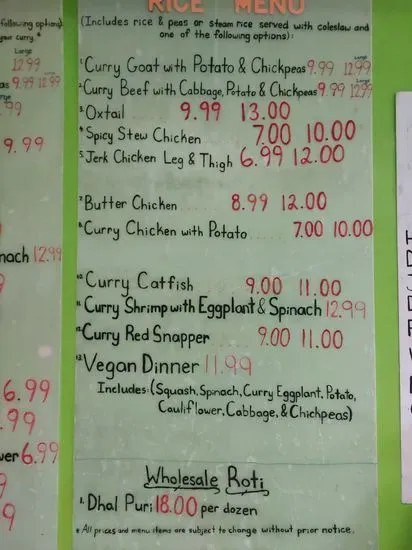 RICE MENU
(Includes rice & peas or steam rice served with coleslaw and
one of the following options):
Large
1. Curry Goat with Potato & Chickpeas 9.99 12.99
Large
2. Curry Beef with Cabbage, Potato & Chickpeas 9.99 12.99
3. Oxtail 9.99 13.00
4. Spicy Stew Chicken 7.00 10.00
5. Jerk Chicken Leg & Thigh 6.99 12.00
7. Butter Chicken 8.99 12.00
8. Curry Chicken with Potato 7.00 10.00
10. Curry Catfish 9.00 11.00
11. Curry Shrimp with Eggplant & Spinach 12.99
12. Curry Red Snapper 9.00 11.00
13. Vegan Dinner 11.99
Includes: (Squash, Spinach, Curry Eggplant, Potato,
Cauliflower, Cabbage, & Chickpeas)
Wholesale Roti
1. Dhal Puri 18.00 per dozen
* All prices and menu items are subject to change without prior notice.
following options)
your curry.*
Large
12.99
Large
9.99 12.99
9.99
12.99
6.99
.99
6.99